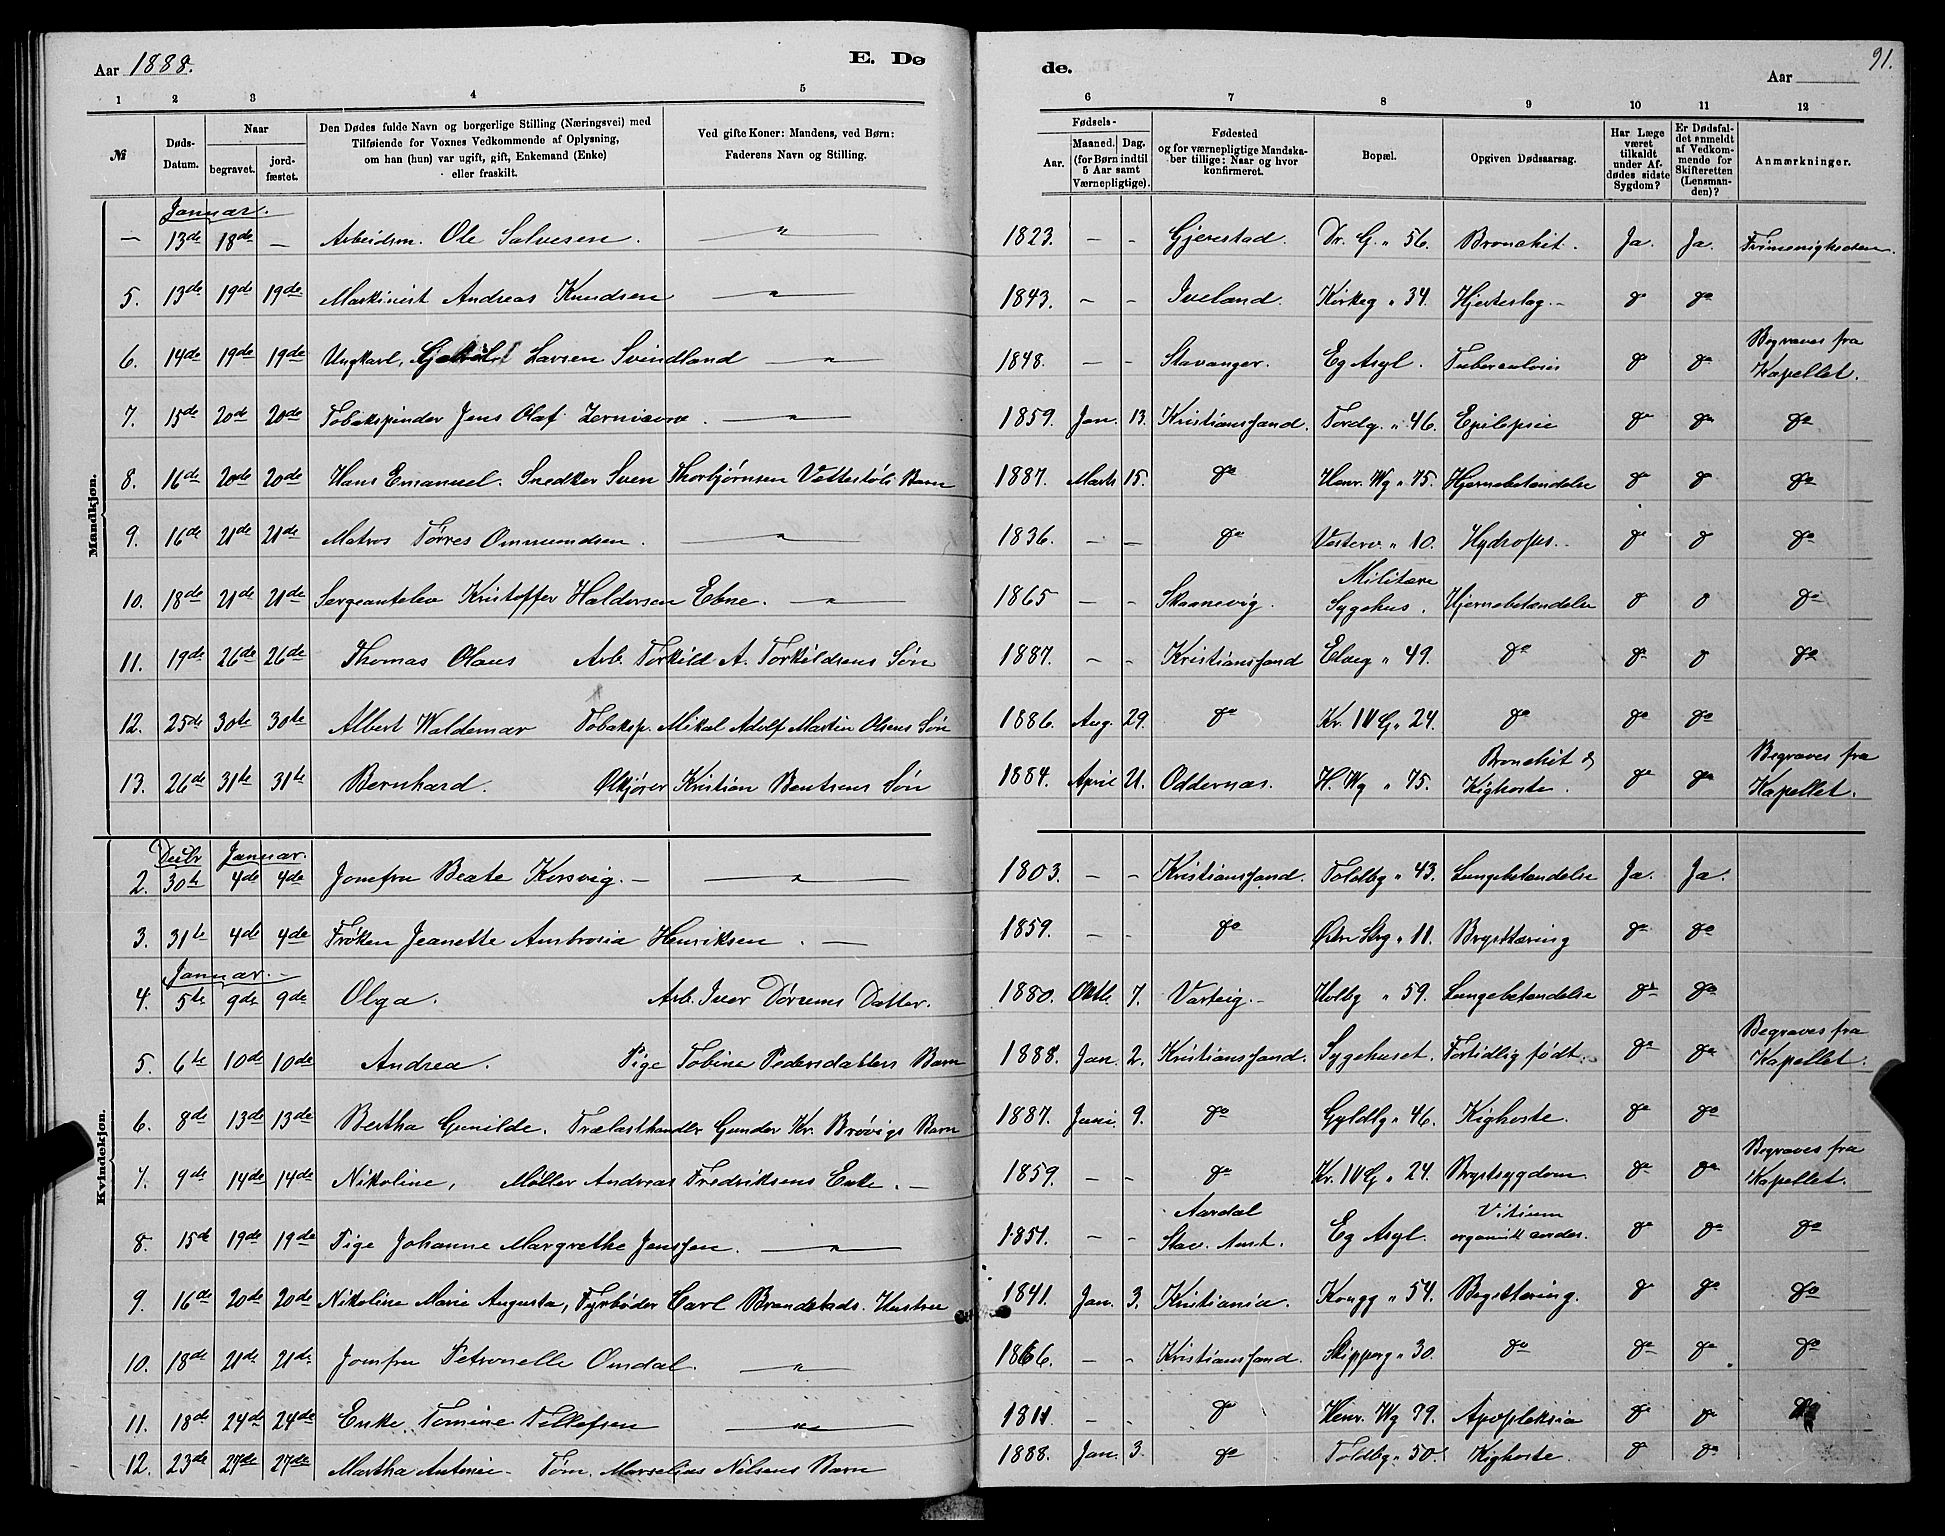 Aar 1888. E. Dø
de. Aar 91.
1 2 3 4 5 6 7 8 9 10 11 12
№ Døds-Datum. Naar begravet. jord-fæstet. Den Dødes fulde Navn og borgerlige Stilling (Næringsvei) med Tilføiende for Voxnes Vedkommende af Oplysning, om han (hun) var ugift, gift, Enkemand (Enke) eller fraskilt. Ved gifte Koner: Mandens, ved Børn: Faderens Navn og Stilling. Fødsels- Aar. Maaned. Dag. (for Børn indtil 5 Aar samt Værnepligtige). Fødested og for værnepligtige Mandskaber tillige: Naar og hvor konfirmeret. Bopæl. Opgiven Dødsaarsag. Har Læge været tilkaldt under Afdødes sidste Sygdom? Er Dødsfaldet anmeldt af Vedkommende for Skifteretten (Lensmanden)? Anmærkninger.
Mandkjøn.
Januar.
— 13de 18de — Arbeidsm. Ole Salvesen. — " — 1823. – – Gjerestad. Dr. G. " 56. Bronchit. Ja. Ja. Frimenigheden.
5. 13de 19de 19de Maskinist Andreas Knudsen — " — 1843. – – Iveland. Kirkeg " 34. Hjerteslag. do do
6. 14de 19de 19de Ungkarl, Larsen Svindland — " — 1848. – – Stavanger. Eg Asyl. Tuberculosis do do Begraves fra Kapellet.
7. 15de 20de 20de Tobakspinder Jens Olaf . — " — 1859. Jan. 13. Kristianssand. Tordg. " 46. Epilepsie do do do
8. 16de 20de 20de Hans Emanuel. Snedker Sven Thorbjørnsen Vettestøls Barn 1887. Marts 15. do Henr. Wg " 75. Hjernebetændelse do do do
9. 16de 21de 21de Matros Tørres Ommundsen. — " — 1836. – – do Vesterv. " 10. Hydrops. do do do
10. 18de 21de 21de Sergeantelev Kristoffer Haldorsen Ebne. — " — 1865 – – Skaanevig. Militære Sygehus. Hjernebetændelse do do do
11. 19de 26de 26de Thomas Olaus Arb. Torkild A. Torkildsens Søn 1887. – – Kristianssand Elveg " 49. do do do do
12. 25de 30te 30te Albert Waldemar Tobaksp. Mikal Adolf Martin Olsens Søn 1886. Aug. 29. do Kr. IV G " 24. do do do
13. 26de 31te 31te Bernhard. Ølkjører Kristian Bentsens Søn 1884. April 21. Oddernæs. H. Wg " 75. Bronchit & Kighoste. do do Begraves fra Kapellet.
Kvindekjøn.
Decbr Januar.
2. 30te 4de 4de Jomfru Beate Korsvig. — " — 1803. – – Kristianssand. Toldbg " 43. Lungebetændelse Ja. Ja.
3. 31te 4de 4de Frøken Jeanette Ambrosia Henriksen. — 1859. – – do Østre Strg " 11. Brysttæring do do
Januar.
4. 5te 9de 9de Olga. Arb. Iver Dørums Datter. 1880. Octb. 7. Varteig. Holbg " 59. Lungebetændelse do do
5. 6te 10de 10de Andrea. Pige Tobine Pedersdatters Barn 1888. Jan. 2. Kristianssand. Sygehuset. Fortidlig født. do do Begraves fra Kapellet.
6. 8de 13de 13de Bertha Gunilde. Trælasthandler Gunder Kr. Brøvigs Barn 1887. Juni. 9. do Gyldbg " 46. Kighoste. do do
7. 9de 14de 14de Nikoline, Møller Andreas Fredriksens Enke. — 1859. – – do Kr. IV G " 24. Brystsygdom do do Begraves fra Kapellet.
8. 15de 19de 19de Pige Johanne Margrethe Jenssen. — " — 1851. – – Aardal Stav. Amt. Eg Asyl. Vitium do do do
9. 16de 20de 20de Nikoline Marie Augusta, Fyrbøder Carl Brandstads Hustru 1841. Jan. 3. Kristiania. Kongg " 54. Brysttæring. do do do
10. 18de 21de 21de Jomfru Petronelle Omdal. — " — 1866. – – Kristianssand. Skipperg " 30. do do do do
11. 18de 24de 24de Enke Tomine Tellefsen — " — 1811 – – do Henr. Wg 79. Apopleksia do do do
12. 23de 27de 27de Martha Antonie. Tøm. Marselius Nilsens Barn 1888. Jan. 3. do Toldbg " 50. Kighoste. do do